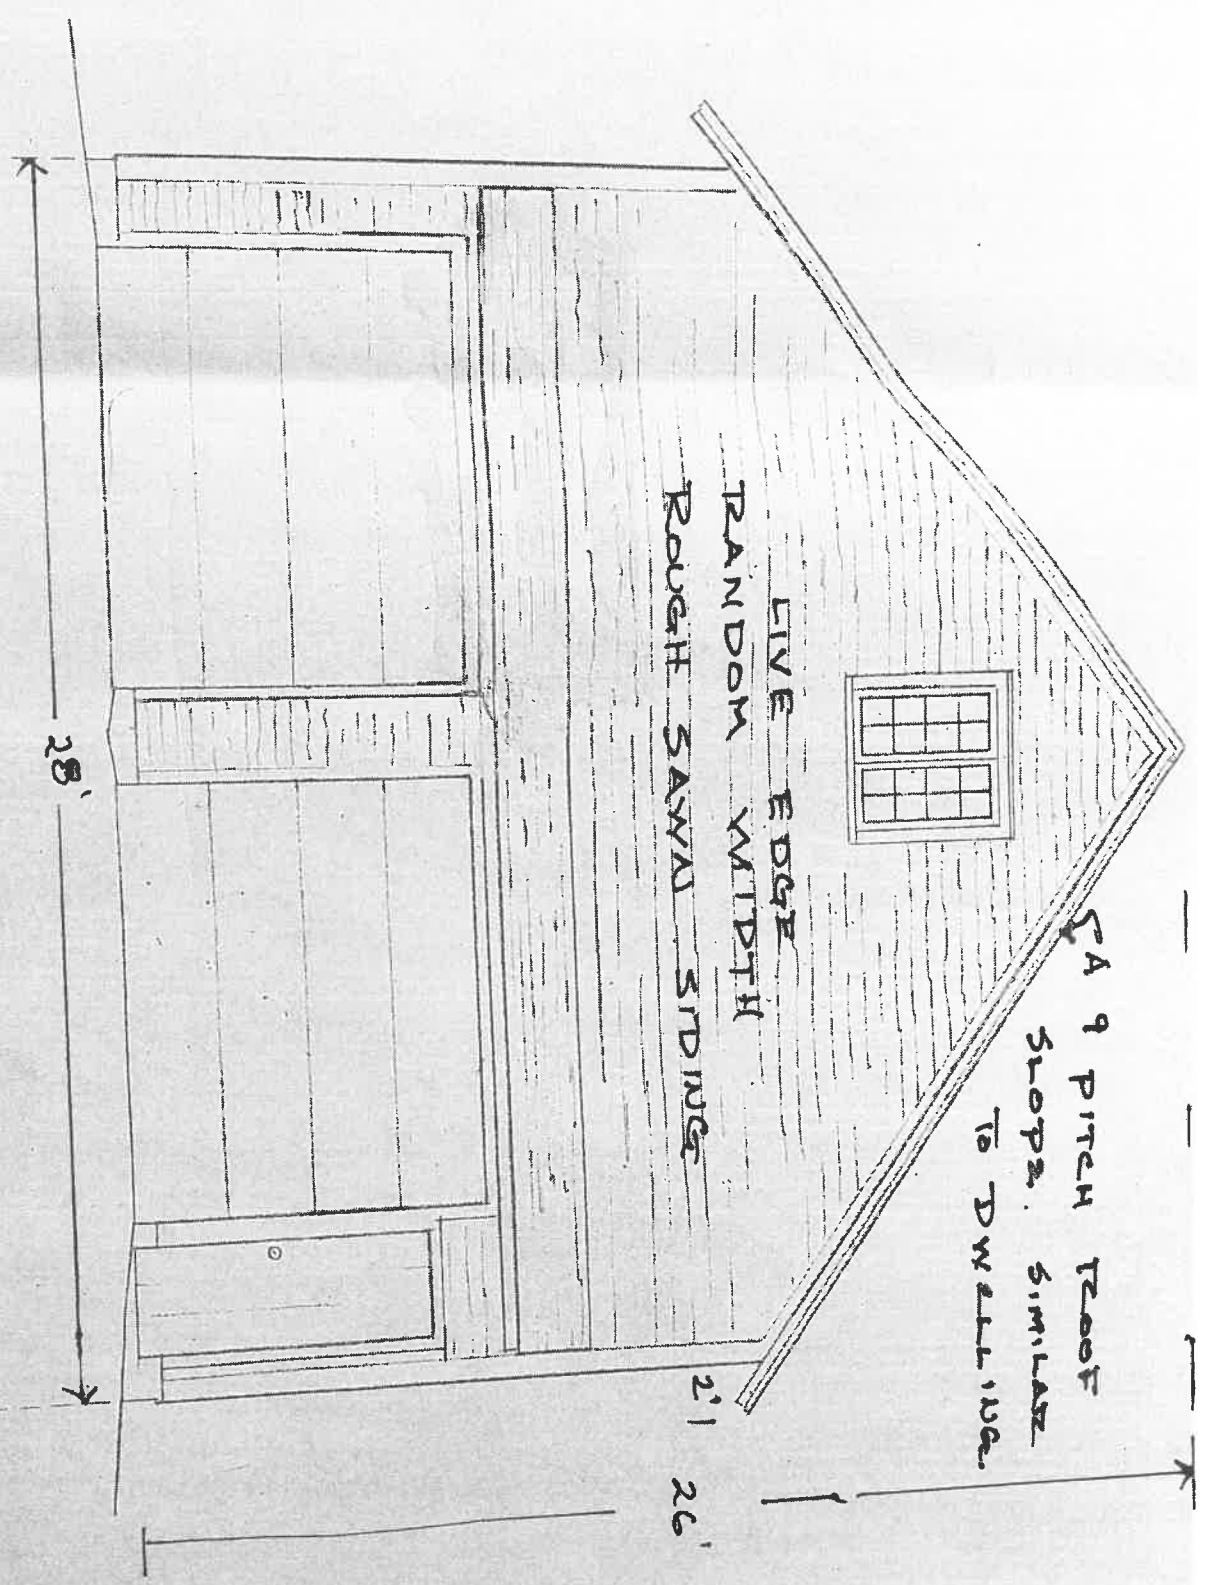 A 9 PITCH ROOF
SLOPE. SIMILAR
TO DWELLING.
LIVE EDGE
RANDOM WIDTH
ROUGH SAWN SIDING
2'1
26'
28'